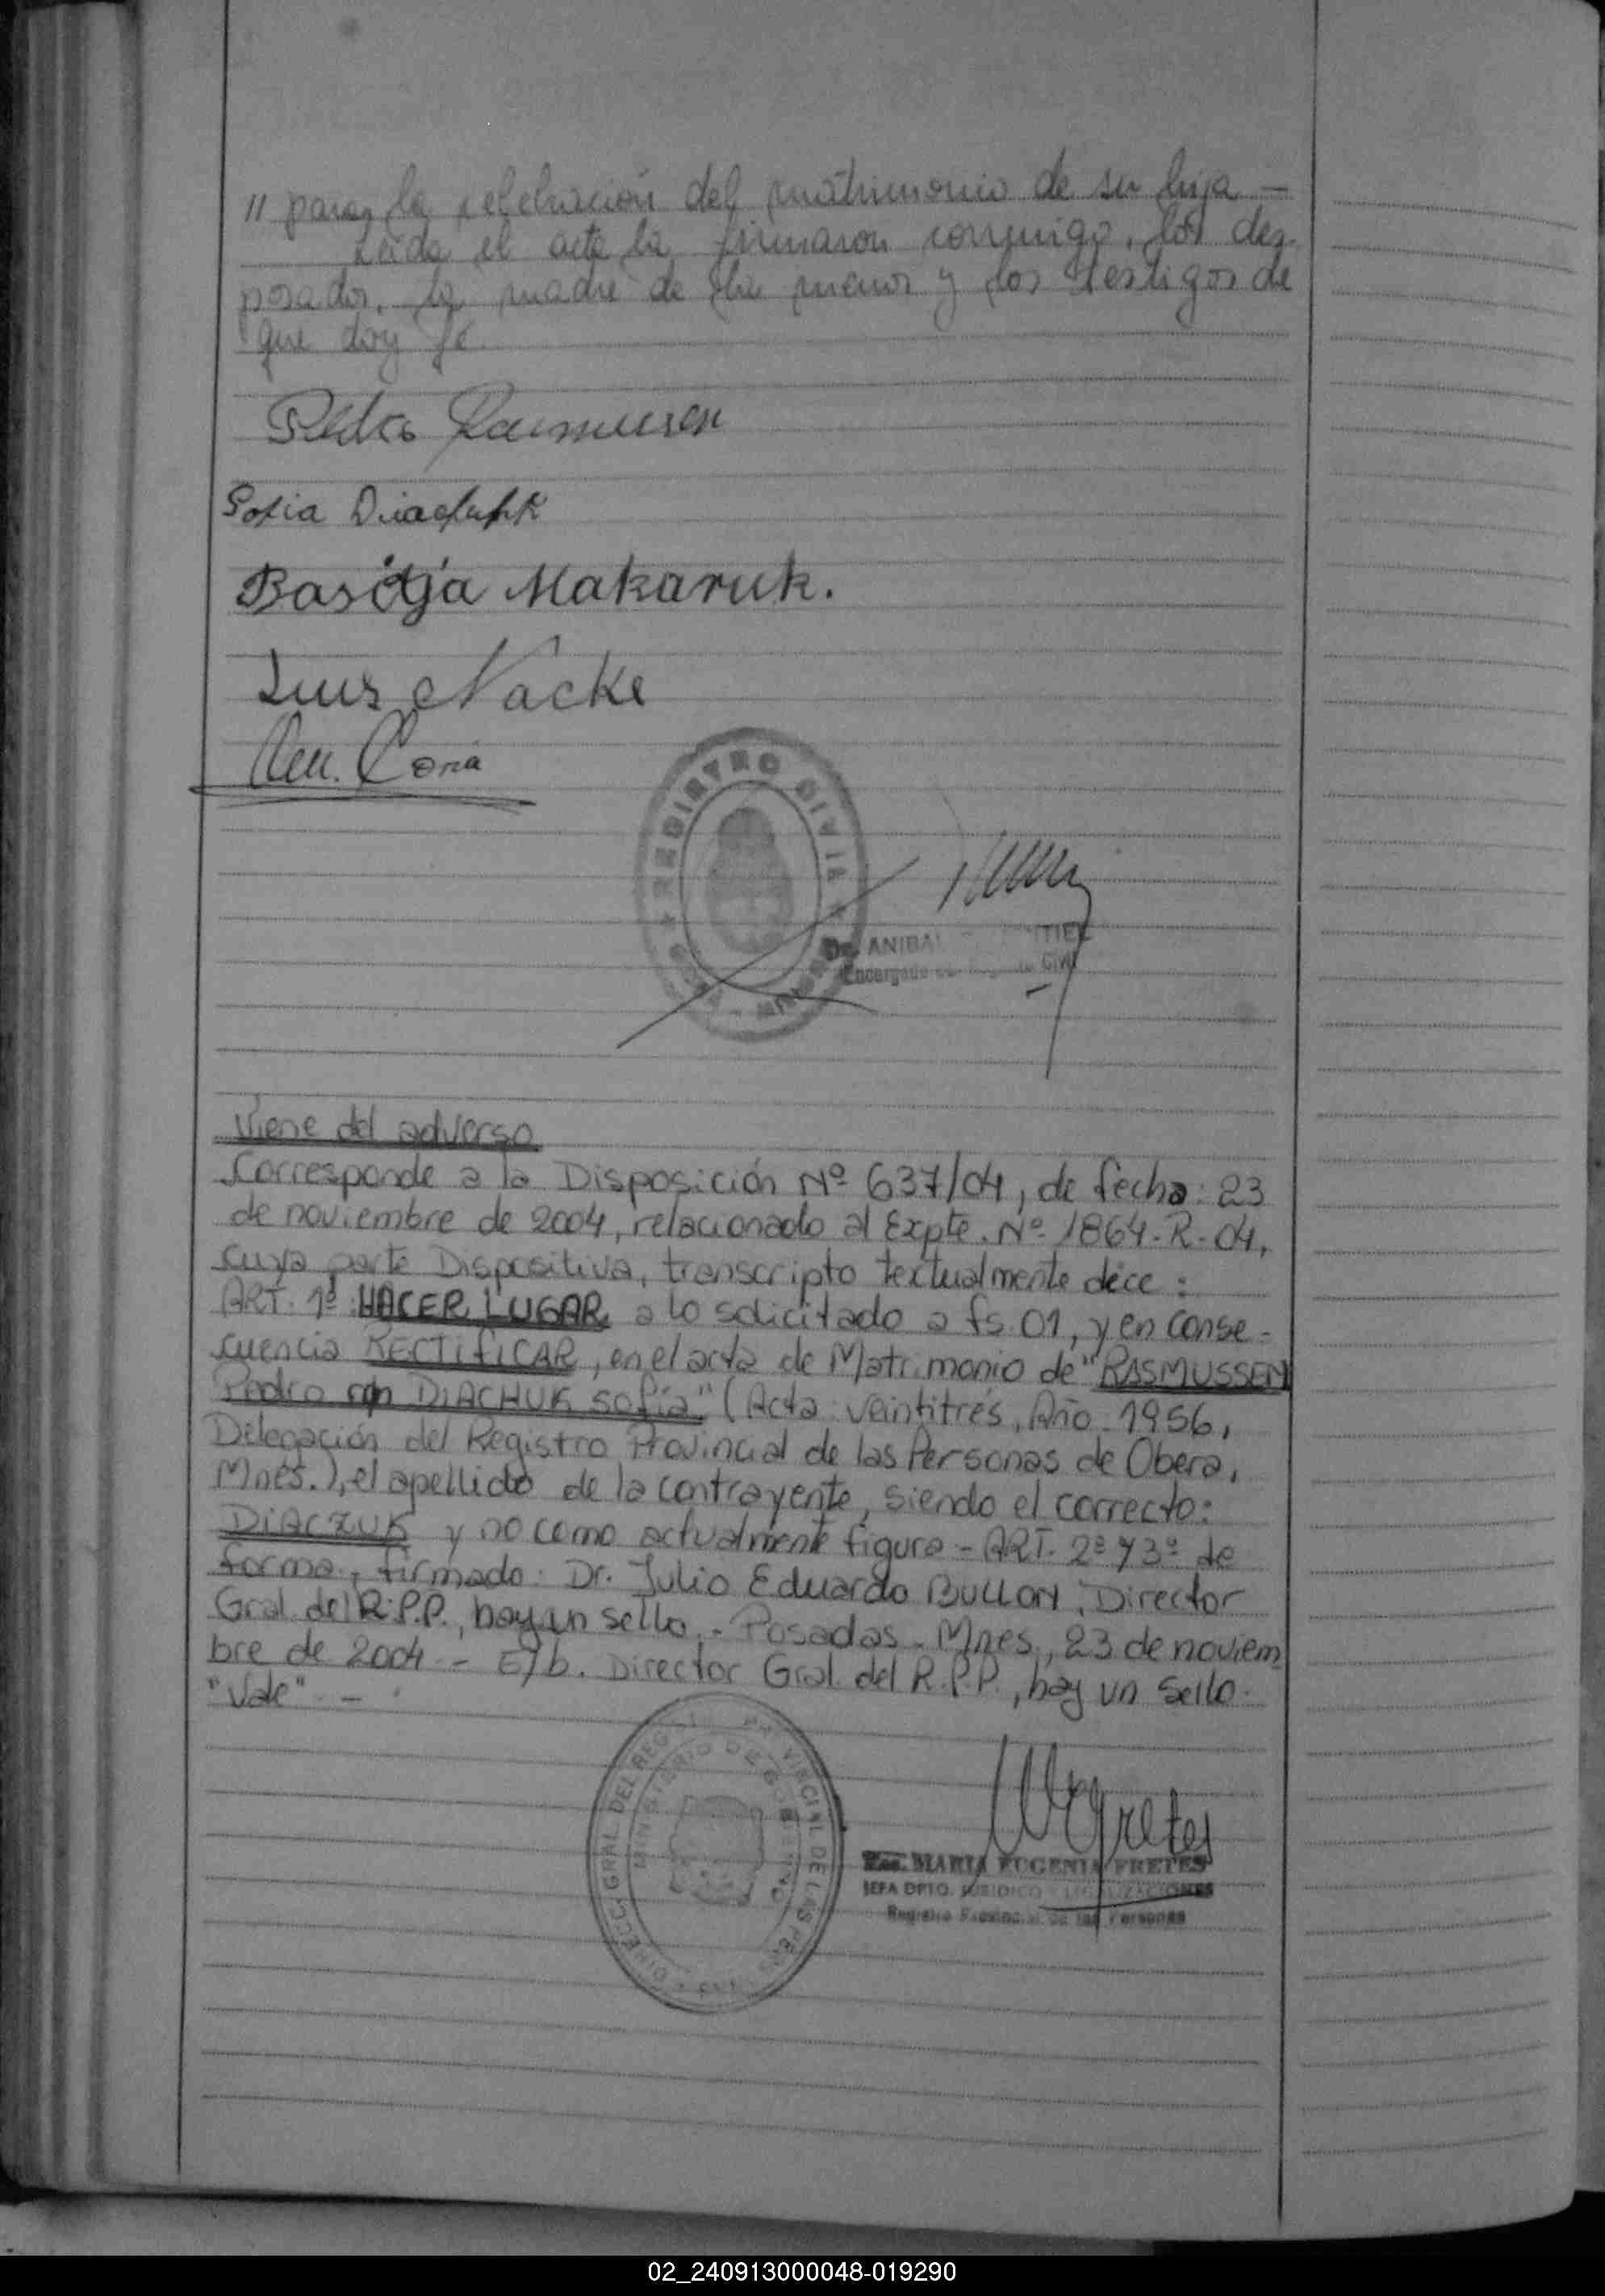 " para la celebración del matrimonio de su hija —
Leída el acta la firmaron conmigo, los des-
posados, la madre de la menor y los testigos de
que doy fé.
Pedro Rasmussen
Sofia Diachuk
Makaruk.
Luis Nacke
Coria
REGISTRO CIVIL
Dr. ANIBAL
Encargado
Viene del adverso
Corresponde a la Disposición Nº 637/04, de fecha: 23
de noviembre de 2004, relacionado al Expte. Nº 1864-R-04,
cuya parte Dispositiva, transcripto textualmente dice:
ART. 1º: HACER LUGAR a lo solicitado a fs. 01, y en conse-
cuencia RECTIFICAR, en el acta de Matrimonio de "RASMUSSEN
Pedro con DIACHUK Sofía" (Acta: veintitrés, Año: 1956,
Delegación del Registro Provincial de las Personas de Obera,
Mnes.), el apellido de la contrayente, siendo el correcto:
DIACZUK y no como actualmente figura - ART. 2º y 3º de
forma, firmado: Dr. Julio Eduardo BULLON, Director
Gral. del R.P.P., hay un sello. - Posadas - Mnes., 23 de noviem
bre de 2004 - E/b. Director Gral. del R.P.P., hay un sello.
"Vale" -
DIRECC. GRAL. DEL REG. PROVINCIAL DE LAS PERS
MINISTERIO DE GOBIERNO
Fretes
MARIA EUGENIA FRETES
JEFA DPTO. JURIDICO - LEGALIZACIONES
Registro Provincial de las Personas
02_240913000048-019290